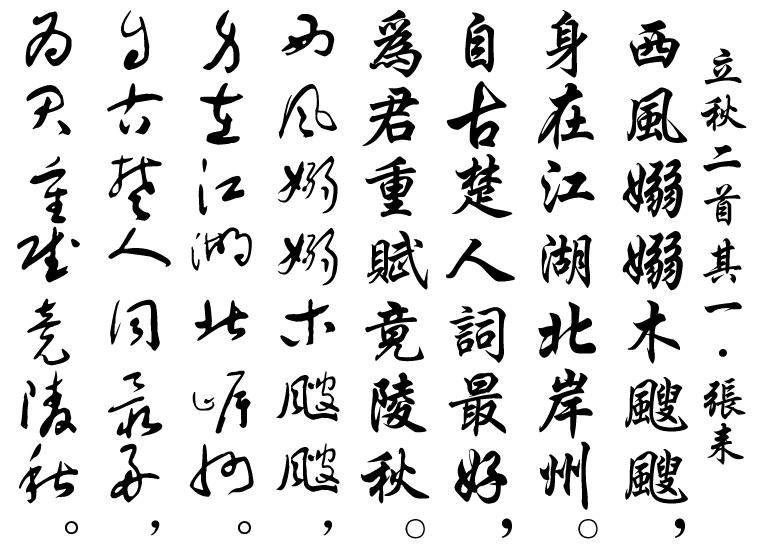 立秋二首其一．張耒
西風嫋嫋木颼颼，
身在江湖北岸州。
自古楚人詞最好，
爲君重賦竟陵秋。
西風嫋嫋木颼颼，
身在江湖北岸州。
自古楚人詞最好，
為君重賦竟陵秋。